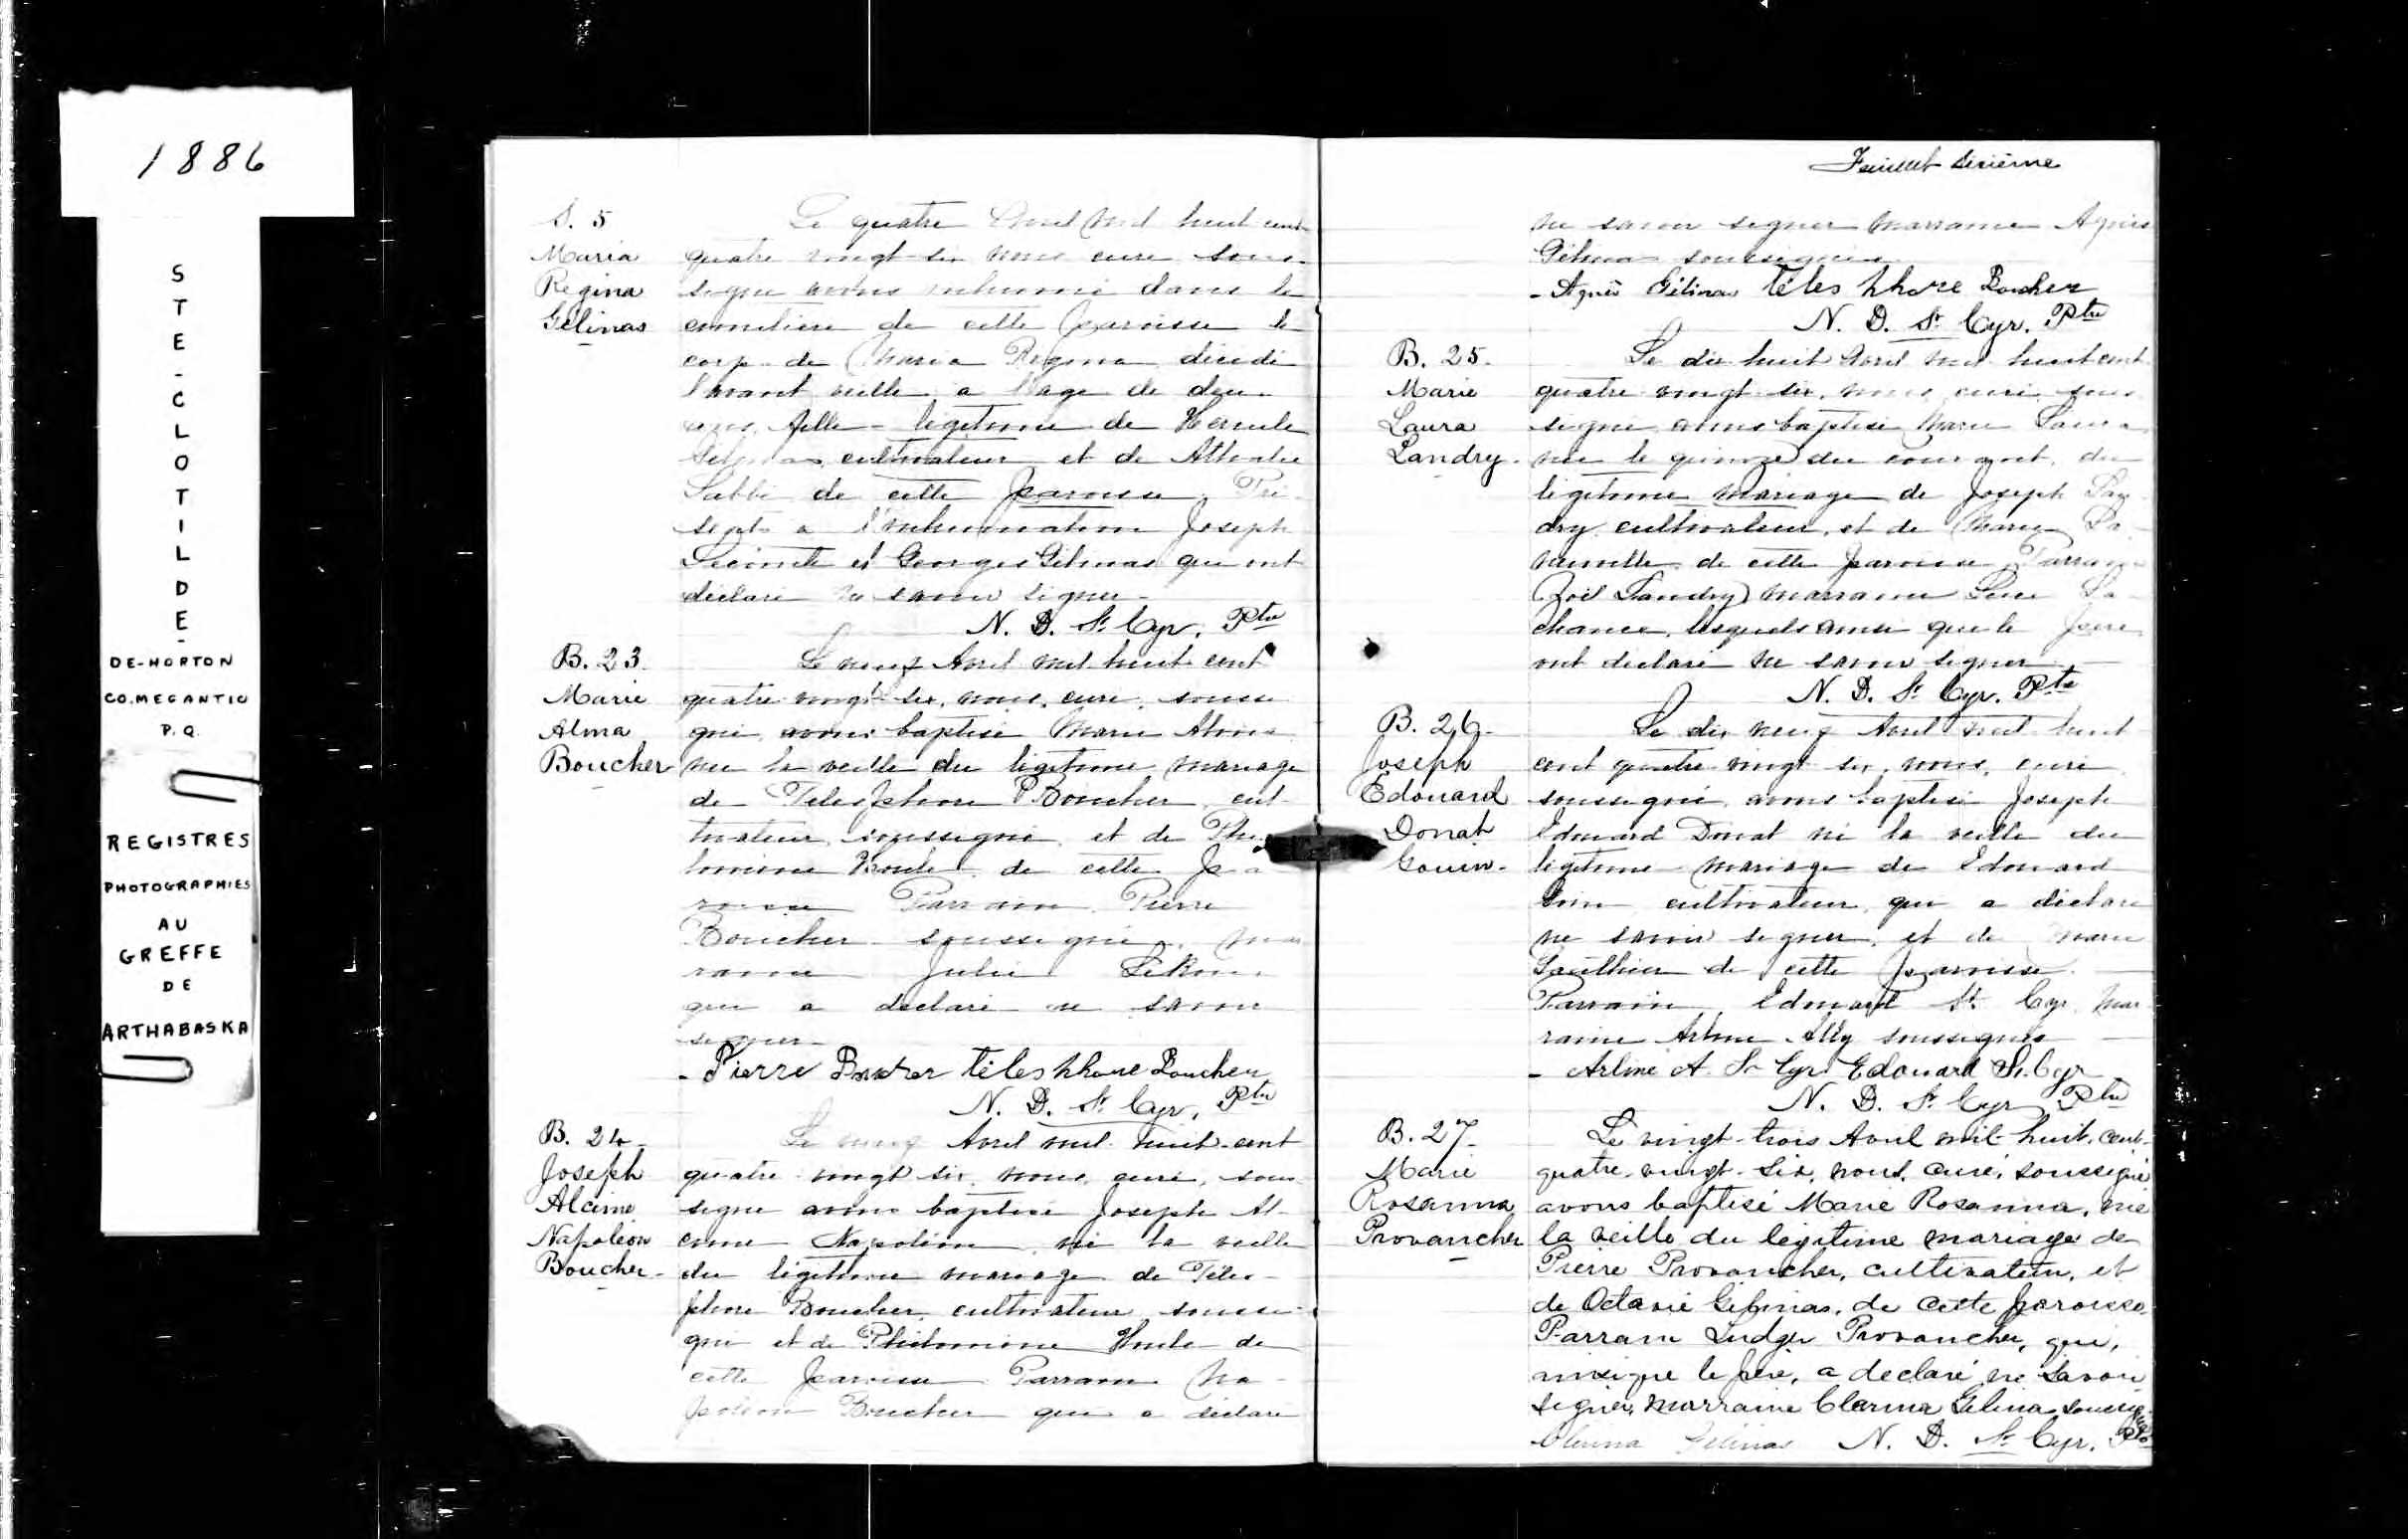 1886
STE-CLOTILDE-
DE-HORTON
CO.MEGANTIC
P.Q.
REGISTRES
PHOTOGRAPHIES
AU
GREFFE
DE
ARTHABASKA
S. 5
Maria
Regina
Gélinas
Le quatre Avril mil huit cent
quatre vingt six nous curé sous-
signé avons inhumé dans le
cimetière de cette paroisse le
corps de Maria Regina décédé
l'avant veille a l'age de deux
ans fille légitime de Hercule
Gelinas cultivateur et de
de cette paroisse. Pré-
sents a l'inhumation Joseph
et Georges Gélinas qui ont
déclaré ne savoir signer.
N. D. St Cyr, Ptre
B. 23.
Marie
Alma
Boucher
Le neuf Avril mil huit cent
quatre vingt six, nous, curé, soussi
gné, avons baptisé Marie Alma
née la veille du légitime mariage
de Telesphore Boucher, cul-
tivateur, soussigné, et de Phi
lomène Houle de cette pa
roisse Parrain Pierre
Boucher soussigné, mar
raine Julie
qui a déclaré ne savoir
signer
- Pierre Boucher télesphore Boucher
N. D. St Cyr, Ptre
B. 24.
Joseph
Alcime
Napoléon
Boucher.
Le neuf Avril mil huit-cent
quatre-vingt six, nous, curé, sous-
signé avons baptisé Joseph Al-
cime Napoléon né la veille
du légitime mariage de Téles-
phore Boucher, cultivateur soussi-
gné et de Philomène Houle de
cette paroisse Parrain Na-
poléon Boucher qui a déclaré
Feuillet sixième
ne savoir signer marraine Agnès
Gélinas soussignée
- Agnès Gélinas télesphore Boucher
N. D. St Cyr. Ptre
B. 25.
Marie
Laura
Landry.
Le dix huit Avril mil huit cent
quatre vingt six, nous curé sous
signé avons baptisé Marie Laura
née le quinze du courant, du
légitime mariage de Joseph Lan
dry cultivateur, et de Marie
de cette paroisse Parrain
Zoël Landry marraine La-
chance, lesquels ainsi que le père
ont déclaré ne savoir signer
N. D. St Cyr. Ptre
B. 26.
Joseph
Edouard
Donat
Gouin.
Le dix neuf Avril mil huit
cent quatre vingt six, nous, curé
soussigné, avons baptisé Joseph
Edouard Donat né la veille du
légitime mariage de Edouard
cultivateur, qui a déclaré
ne savoir signer, et de Marie
Gauthier de cette paroisse.
Parrain, Edouard St Cyr, mar-
raine Arline Ally soussignés
- Arline A. St Cyr Edouard St. Cyr
N. D. St Cyr Ptre
B. 27.
Marie
Rosanna
Provancher
Le vingt-trois Avril mil-huit-cent-
quatre-vingt-six, nous, curé, soussigné
avons baptisé Marie Rosanna, née
la veille du légitime mariage de
Pierre Provancher, cultivateur, et
de Octavie Gélinas, de cette paroisse.
Parrain Ludger Provancher, qui,
ainsi que le père, a déclaré ne savoir
signer, marraine Clerina Gélinas soussignée
Clerina Gélinas N. D. St Cyr. Ptre